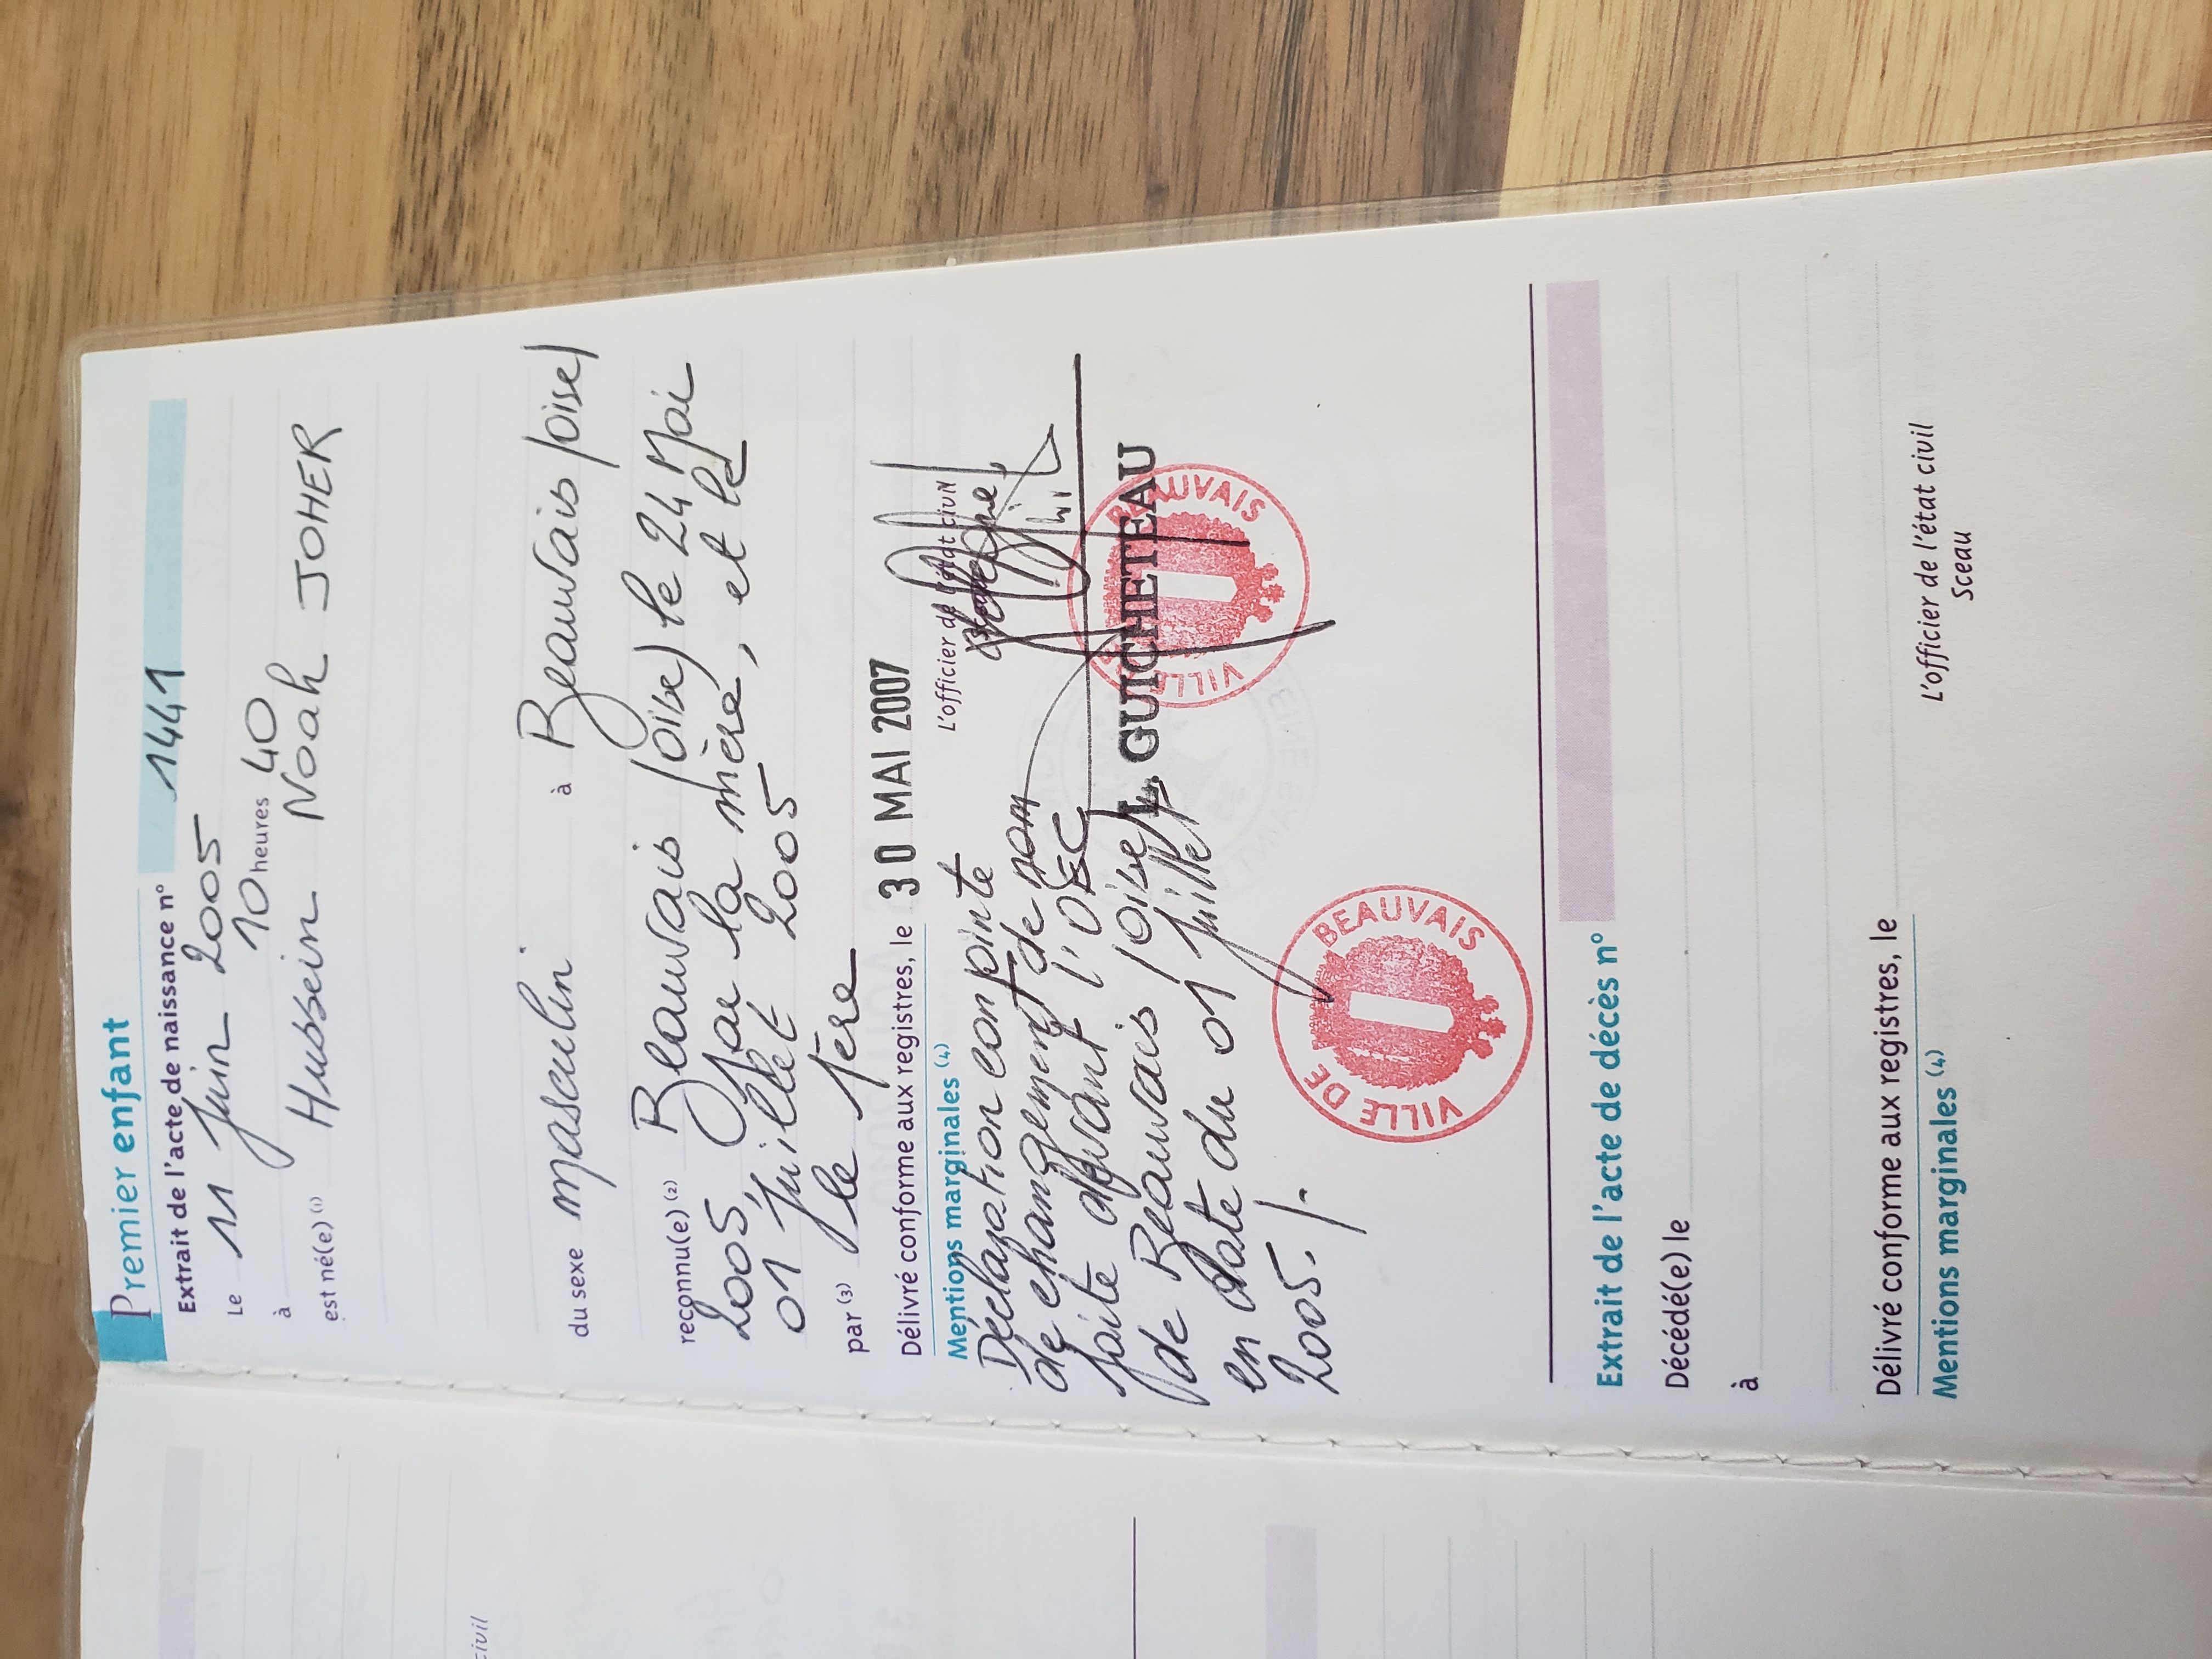 Premier enfant
Extrait de l'acte de naissance n° 1441
Le 11 Juin 2005
à 10 heures 40
est né(e) (1) Hussein Noah JOHER
du sexe masculin à Beauvais (oise)
reconnu(e) (2) Beauvais (oise) le 24 Mai
2005, par la mère, et le
01 Juillet 2005
par (3) le Père
Délivré conforme aux registres, le 30 MAI 2007
Mentions marginales (4)
L'officier de l'état civil
Déclaration conjointe
de changement de nom
faite devant l'OEC
de Beauvais (oise)
en date du 01 Juillet
2005./.
L. GUICHETEAU
VILLE DE BEAUVAIS
VILLE DE BEAUVAIS
Extrait de l'acte de décès n°
Décédé(e) le
à
Délivré conforme aux registres, le
Mentions marginales (4)
L'officier de l'état civil
Sceau
civil